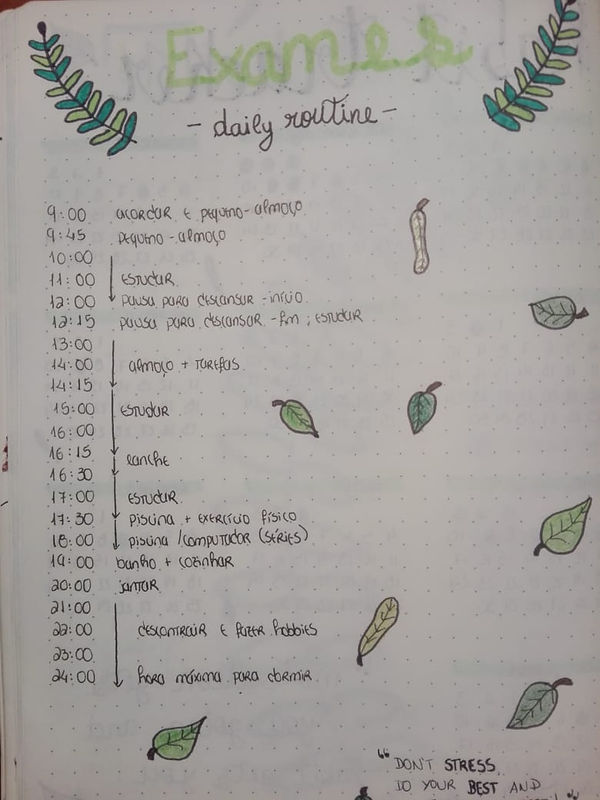 Exames
- daily routine -
9:00 acordar e pequeno-almoço
9:45 pequeno-almoço
10:00
11:00 estudar
12:00 pausa para descansar - início
12:15 pausa para descansar - fim ; estudar
13:00
14:00 almoço + tarefas
14:15
15:00 estudar
16:00
16:15 lanche
16:30
17:00 estudar
17:30 piscina + exercício físico
18:00 piscina / computador (séries)
19:00 banho + cozinhar
20:00 jantar
21:00
22:00 descontrair e fazer hobbies
23:00
24:00 hora máxima para dormir
"DON'T STRESS
DO YOUR BEST AND